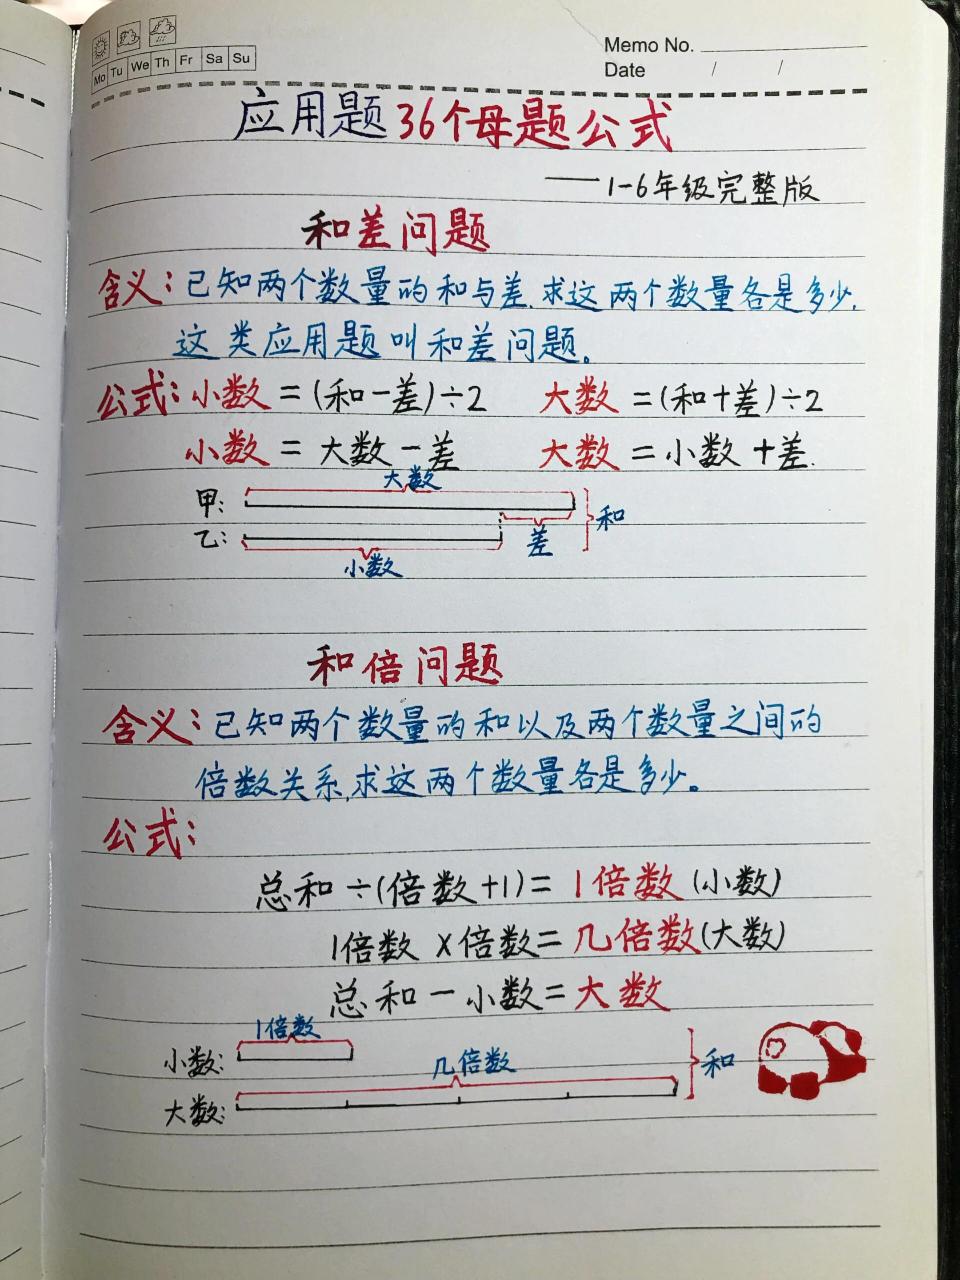 Memo No.
Mo Tu We Th Fr Sa Su
Date / /
应用题36个母题公式
——1-6年级完整版
和差问题
含义:已知两个数量的和与差,求这两个数量各是多少,
这类应用题叫和差问题。
公式:小数=(和-差)÷2 大数=(和+差)÷2
小数=大数-差 大数=小数+差.
大数
甲:
和
乙:
差
小数
和倍问题
含义:已知两个数量的和以及两个数量之间的
倍数关系,求这两个数量各是多少。
公式:
总和÷(倍数+1)=1倍数(小数)
1倍数×倍数=几倍数(大数)
总和-小数=大数
1倍数
小数:
几倍数
和
大数: